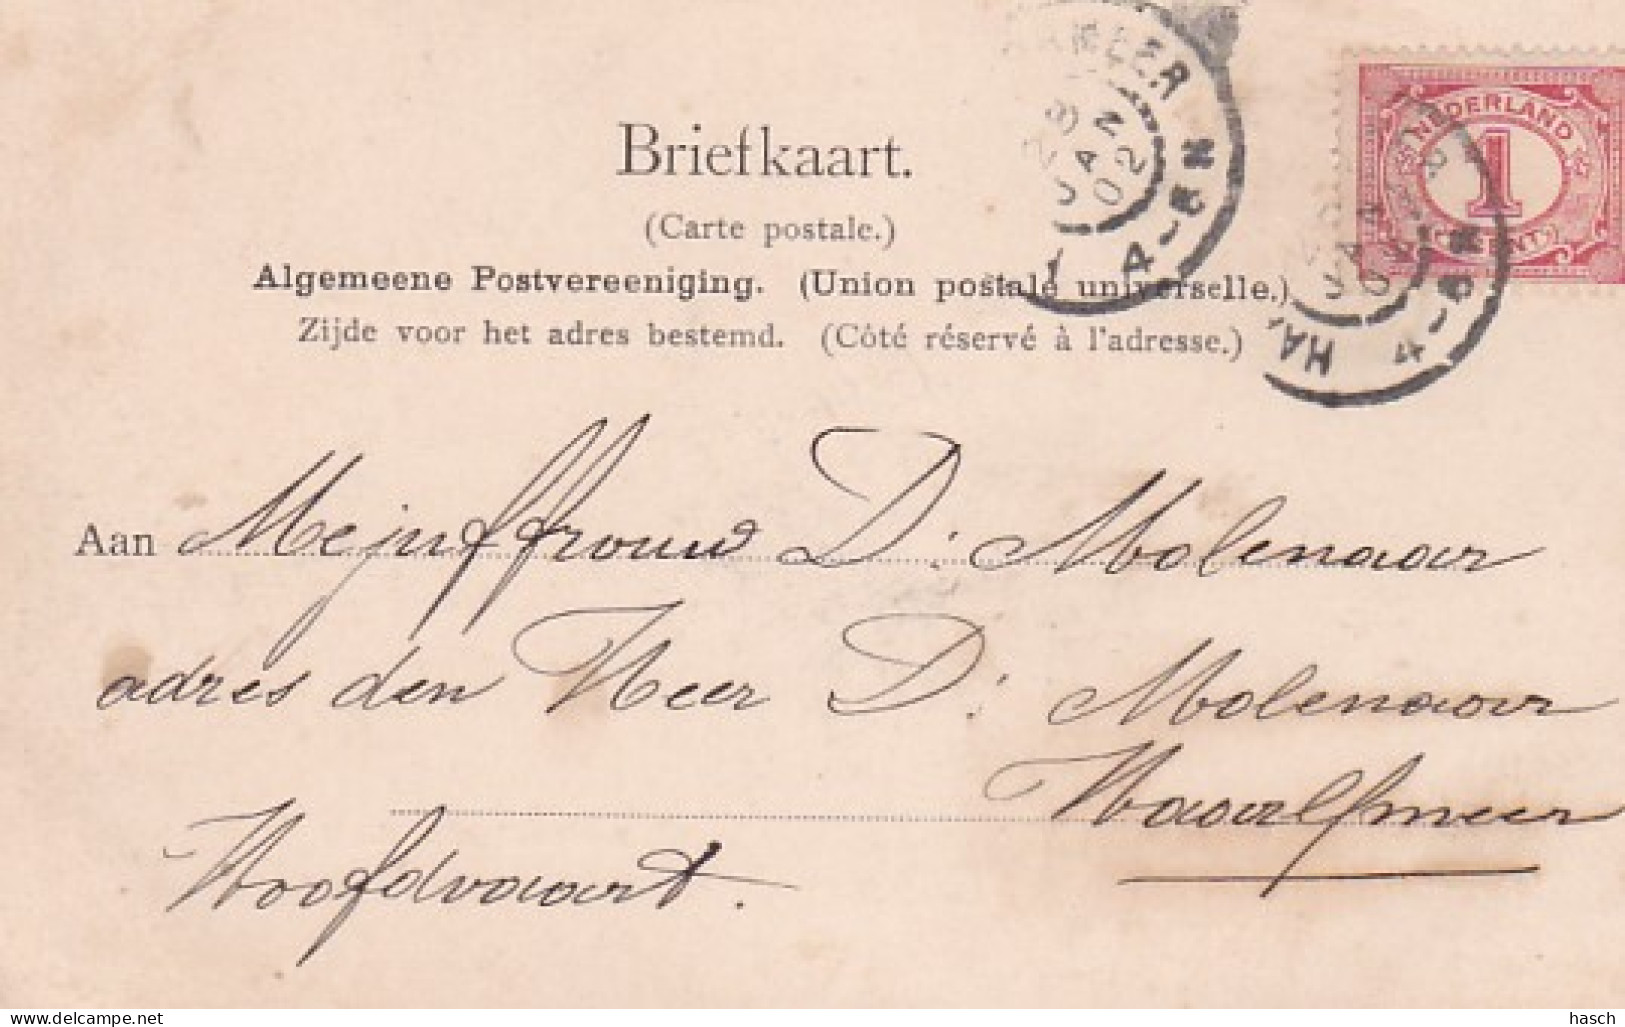 MEER
28
JAN
02
4-8N
NEDERLAND
1
CENT
HA
4-8N
Briefkaart.
(Carte postale.)
Algemeene Postvereeniging. (Union postale universelle.)
Zijde voor het adres bestemd. (Côté réservé à l'adresse.)
Aan Mejuffrouw D. Molenaar
adres den Heer D. Molenaar
Haarl/meer
Hoofdvaart.
www.delcampe.net
hasch